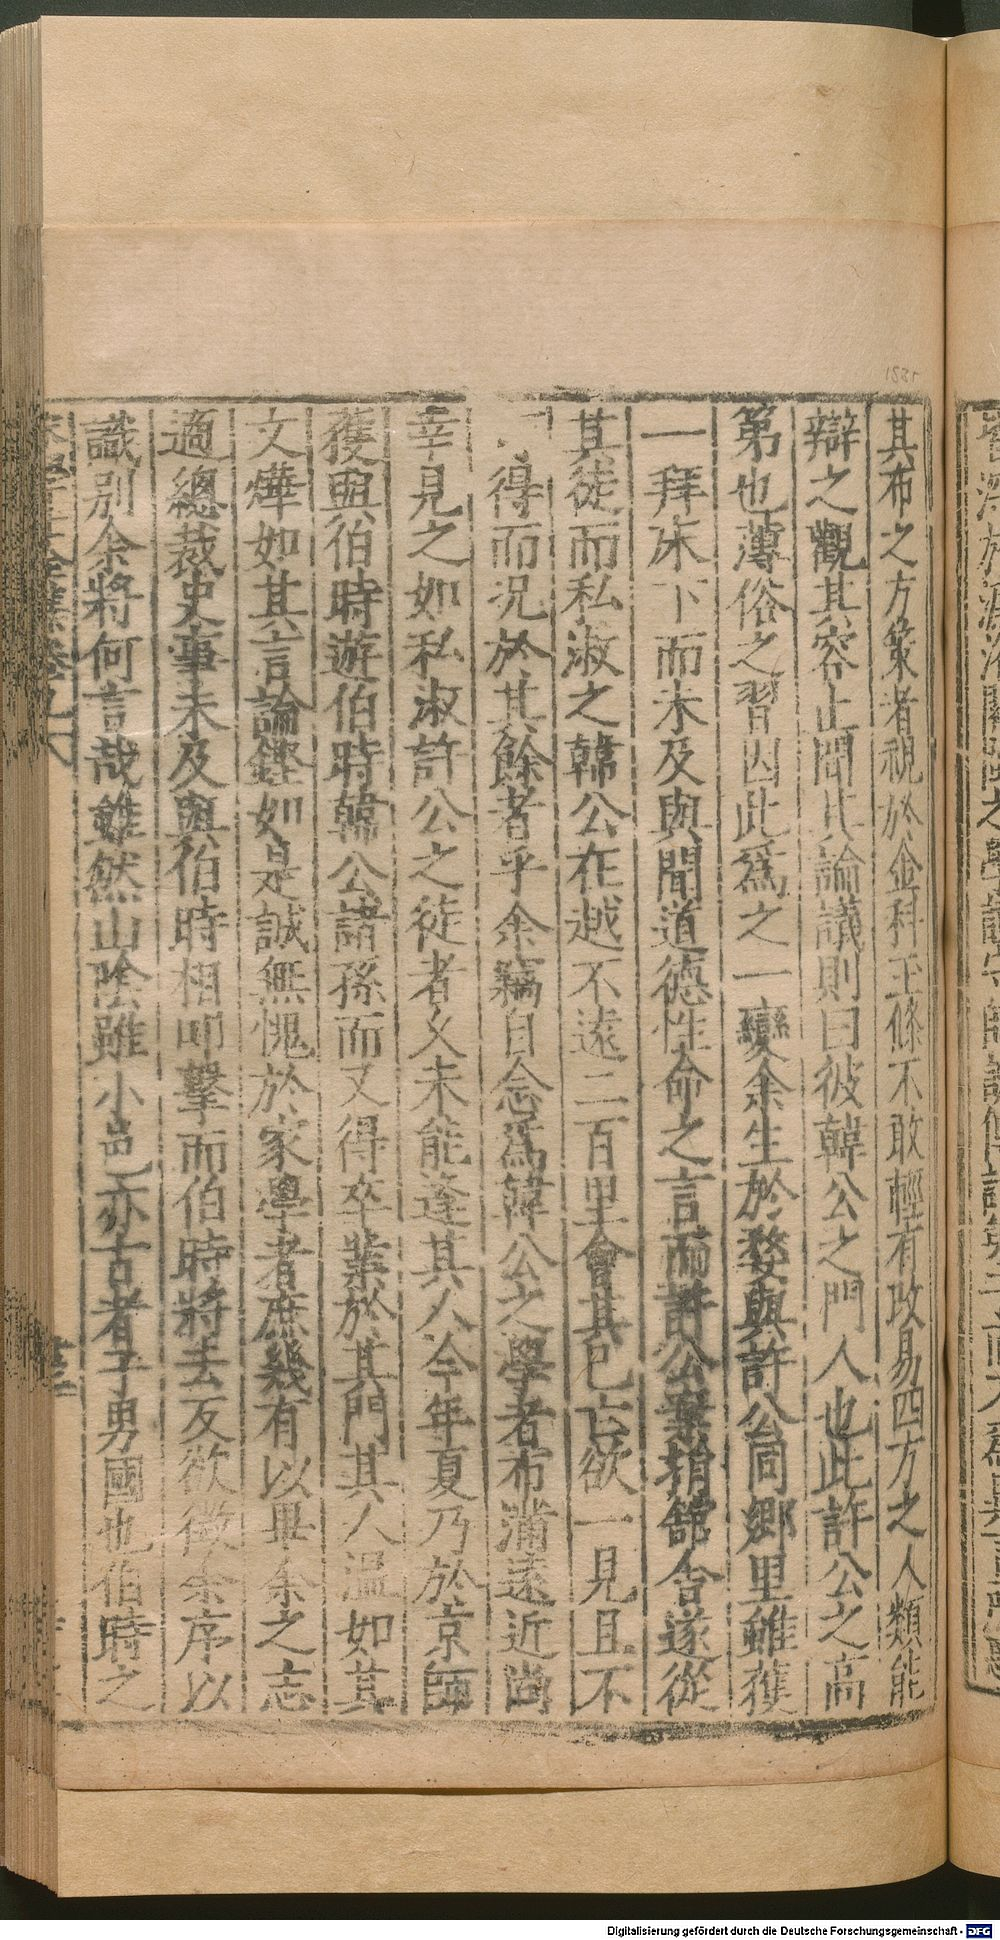 其布之方策者視於金科玉條不敢輕有改易四方之人類能
辯之觀其容止聞其論議則曰彼韓公之門人也此許公之高
第也薄俗之習因此爲之一變余生於婺與許公同鄉里雖獲
一拜床下而未及與聞道德性命之言而許公棄捐館舍遂從
其徒而私淑之韓公在越不遠二百里會其已亡欲一見且不
可得而况於其餘者乎余竊自念爲韓公之學者布滿遠近尚
幸見之如私淑許公之徒者久未能逢其人今年夏乃於京師
獲與伯時遊伯時韓公諸孫而又得卒業於其門其人温如其
文燁如其言論鏗如是誠無愧於家學者庶幾有以畢余之志
適總裁史事未及與伯時相叩擊而伯時將去反欲徵余序以
識別余將何言哉雖然山陰雖小邑亦古者子男國也伯時之
1521
Digitalisierung gefördert durch die Deutsche Forschungsgemeinschaft - DFG